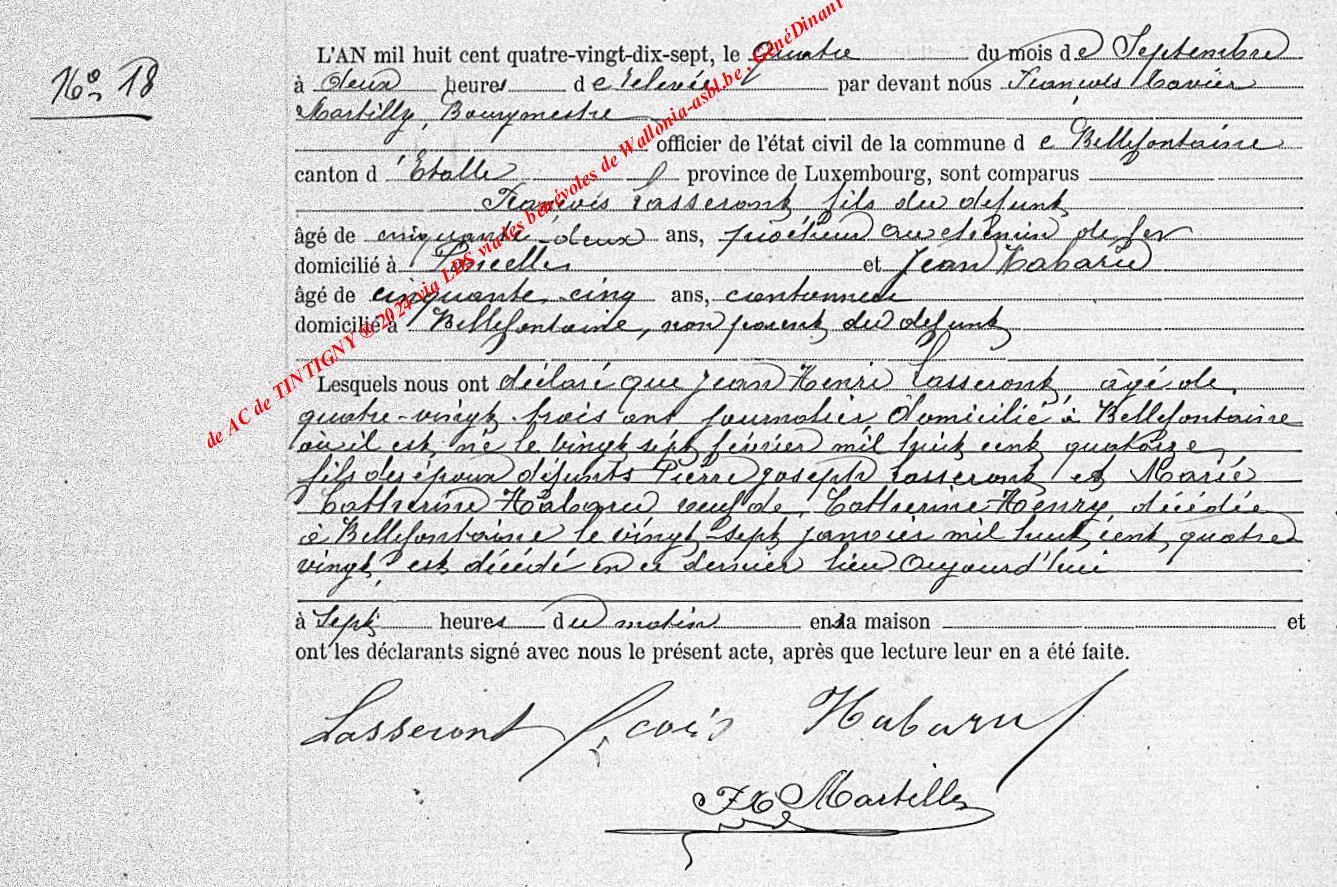 No 18
L'AN mil huit cent quatre-vingt-dix-sept, le quatre du mois de Septembre
à deux heures de relevée par devant nous François Xavier
Martilly, Bourgmestre
officier de l'état civil de la commune de Bellefontaine
canton d'Etalle province de Luxembourg, sont comparus
François Lasseront fils du defunt
âgé de cinquante-deux ans, au chemin de fer
domicilié à et Jean Habaru
âgé de cinquante cinq ans, cantonnier
domicilié à Bellefontaine, non parent du defunt
Lesquels nous ont déclaré que Jean Henri Lasseront, âgé de
quatre-vingt trois ans journalier domicilié à Bellefontaine
où il est né le vingt sept février mil huit cent quatorze,
fils des époux défunts Pierre Joseph Lasseront et Marie
Catherine Habaru veuf de Catherine Henry, décédée
à Bellefontaine le vingt-sept janvier mil huit cent quatre
vingt, est décédé en ce dernier lieu aujourd'hui
à Sept heures du matin en sa maison et
ont les déclarants signé avec nous le présent acte, après que lecture leur en a été faite.
Lasseront fçois Habaru
FX Martilly
de AC de TINTIGNY ® 2024 via LDS via les bénévoles de Wallonia-asbl.be , GénéDinant